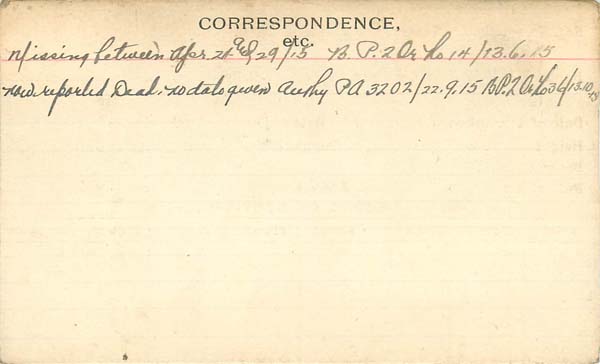 CORRESPONDENCE,
etc.
Missing between Apr. 24 & 29/15 B. P. 2 Or No 14/13.6.15
now reported Dead, no date given Authy PA 3202/22.9.15 B.P.2 Or No 36/13.10.15